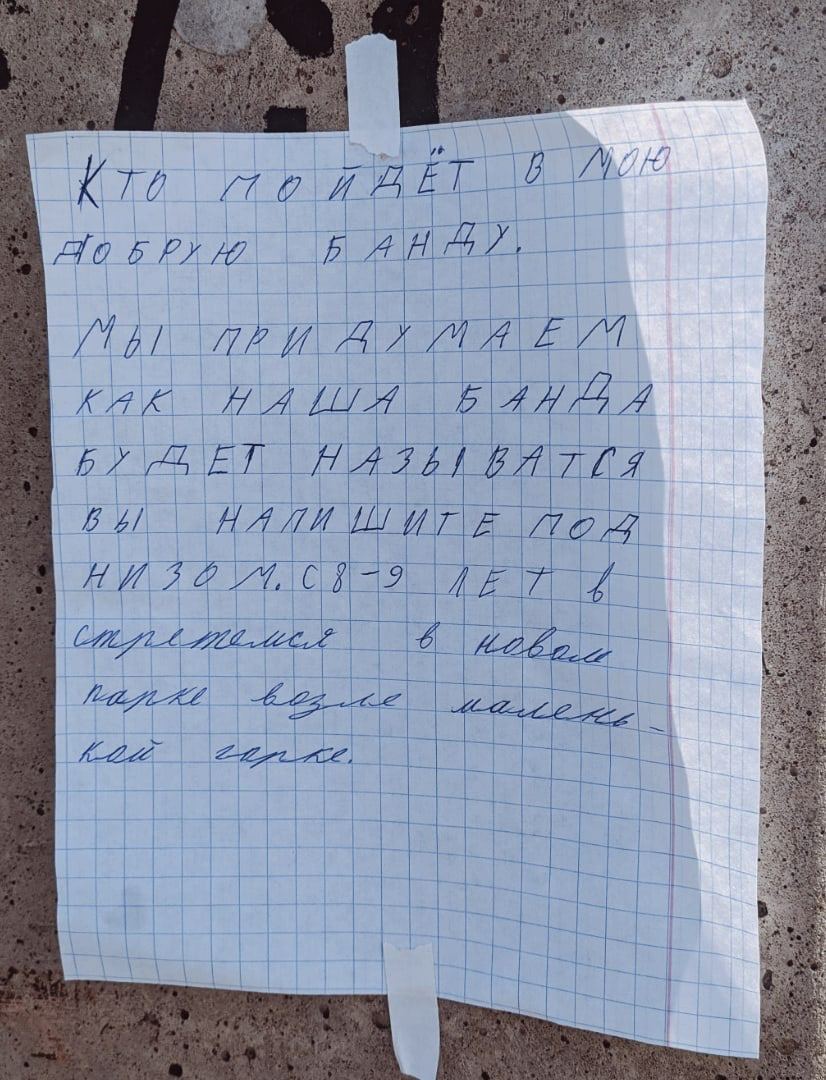 Кто пойдёт в мою
добрую банду.
Мы придумаем
как наша банда
будет называтся
вы напишите под
низом. с 8-9 лет в
стретемся в новом
парке возле малень-
кой гарке.